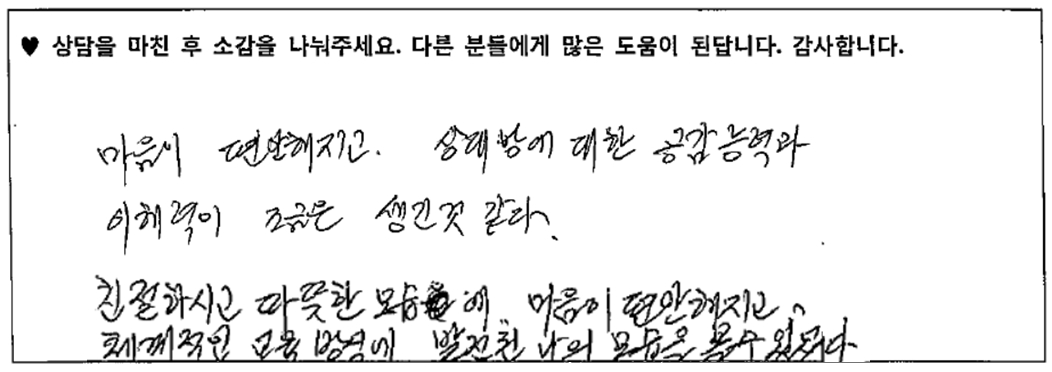 ♥ 상담을 마친 후 소감을 나눠주세요. 다른 분들에게 많은 도움이 된답니다. 감사합니다.
마음이 편안해지고. 상대방에 대한 공감능력과
이해력이 조금은 생긴것 같다.
친절하시고 따뜻한 모습에 마음이 편안해지고,
체계적인 교육 방법에 발전된 나의 모습을 볼수 있었다